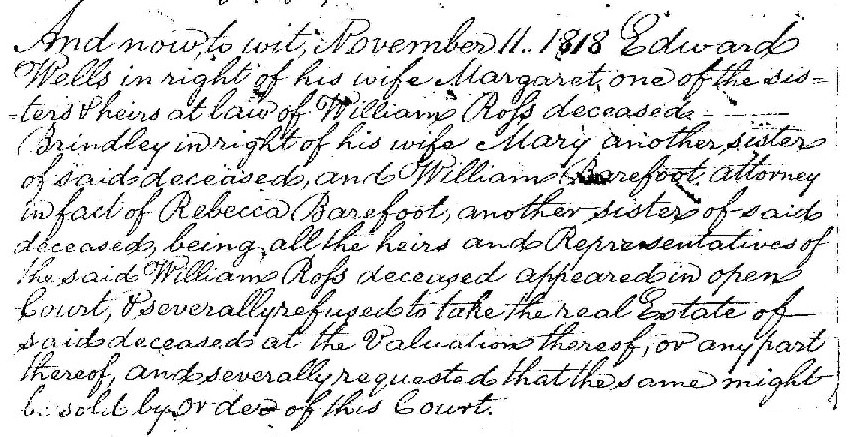 And now, to wit, November 11.. 1818 Edward
Wells in right of his wife Margaret, one of the sis=
=ters & heirs at law of William Ross deceased, - - - —
Brindley in right of his wife Mary another sister
of said deceased, and William Barefoot, attorney
in fact of Rebecca Barefoot, another sister of said
deceased, being all the heirs and Representatives of
the said William Ross deceased appeared in open
Court, & severally refused to take the real Estate of
said deceased at the Valuation thereof, or any part
thereof, and severally requested that the same might
be sold by order of this Court.